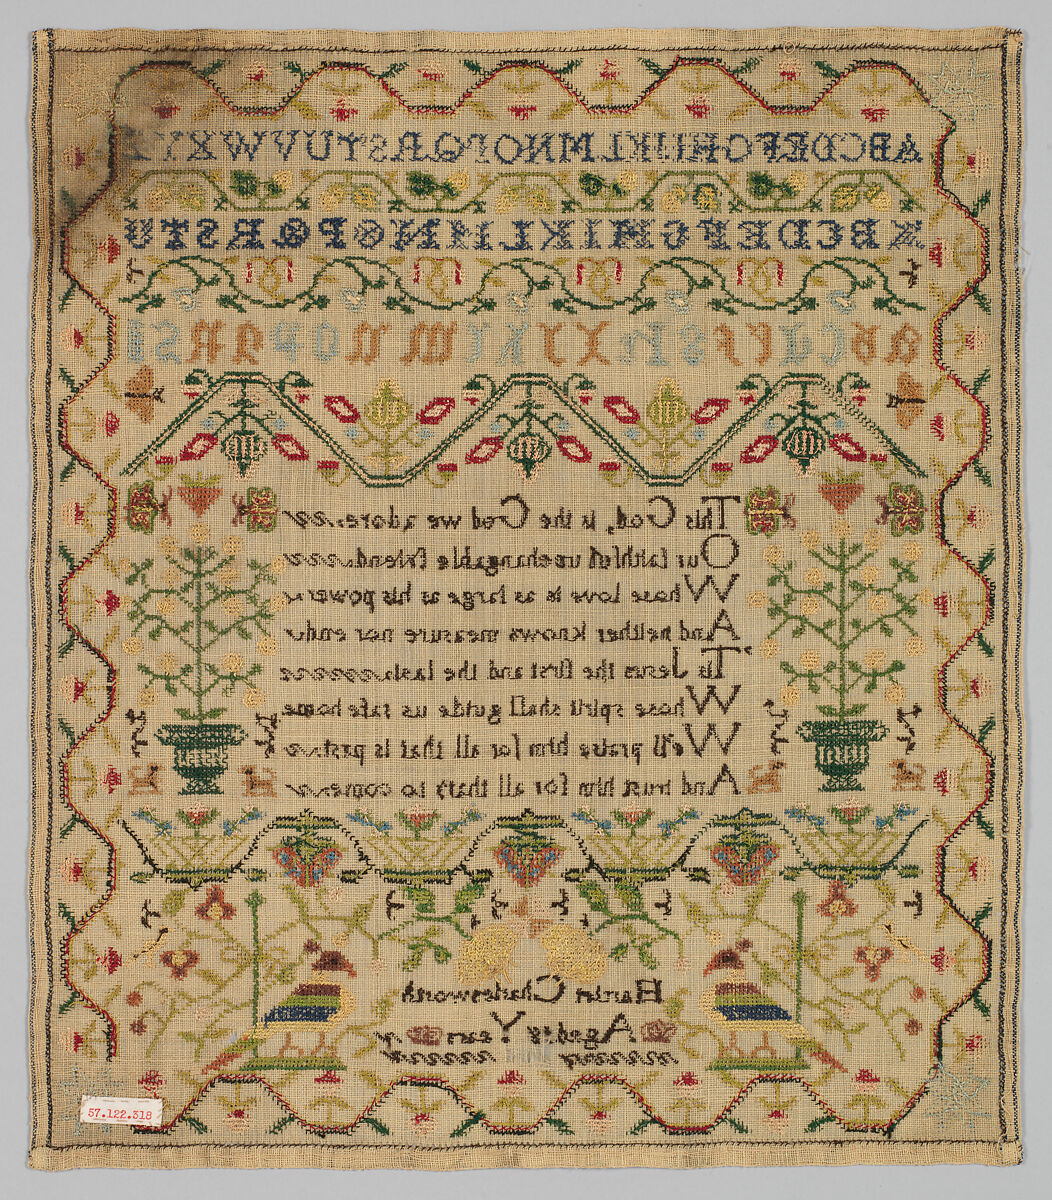 ABCDEFGHIJKLMNOPQRSTUVWXYZ
ABCDEFGHIKLMNOPQRSTU
This God, is the God we adore
Our faithful unchangable friend
Whose love is as large as his power
And neither knows measure nor end
'Tis Jesus the first and the last
Whose spirit shall guide us safe home
We'll praise him for all that is past
And trust him for all thats to come
Harriet Charlesworth
Aged Years
57.122.318